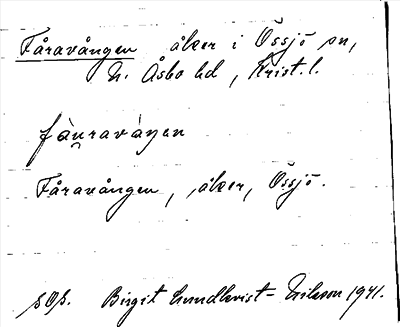 Fåravången åker i Össjö sn,
N. Åsbo hd, Krist. l.
fàu̯ravàŋen
Fåravången, åker, Össjö.
Birgit Lundkvist-Nilsson 1941.